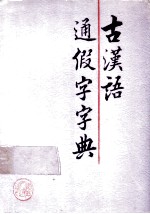 古漢語
通假字字典